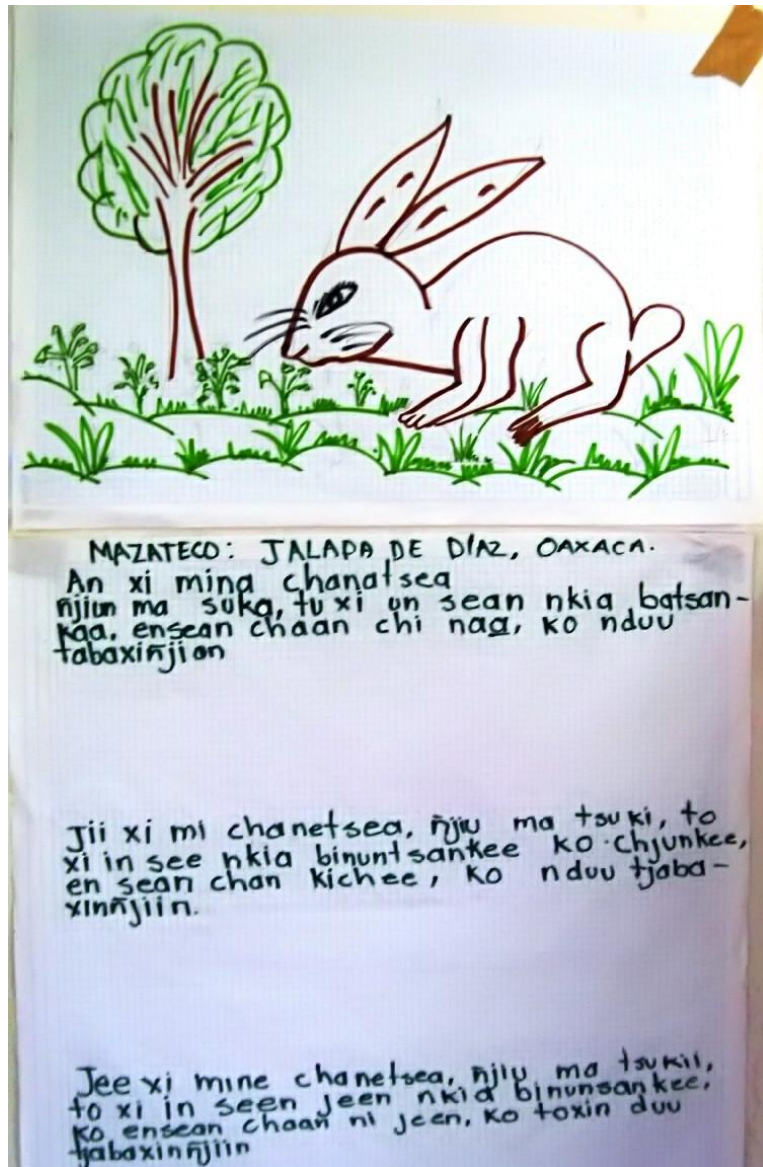 MAZATECO: JALAPA DE DÍAZ, OAXACA.
An xi mina chanatsea
ñjiun ma suka, tu xi un sean nkia batsan-
kaa, ensean chaan chi naa, ko nduu
tabaxiñjion
Jii xi mi chanetsea, ñjiu ma tsuki, to
xi in see nkia binuntsankee ko chjunkee,
en sean chan kichee, ko nduu tjaba-
xinñjiin.
Jee xi mine chanetsea, ñjiu ma tsukii,
to xi in seen jeen nkia binunsankee,
ko ensean chaan ni jeen, ko toxin duu
tjabaxinñjiin